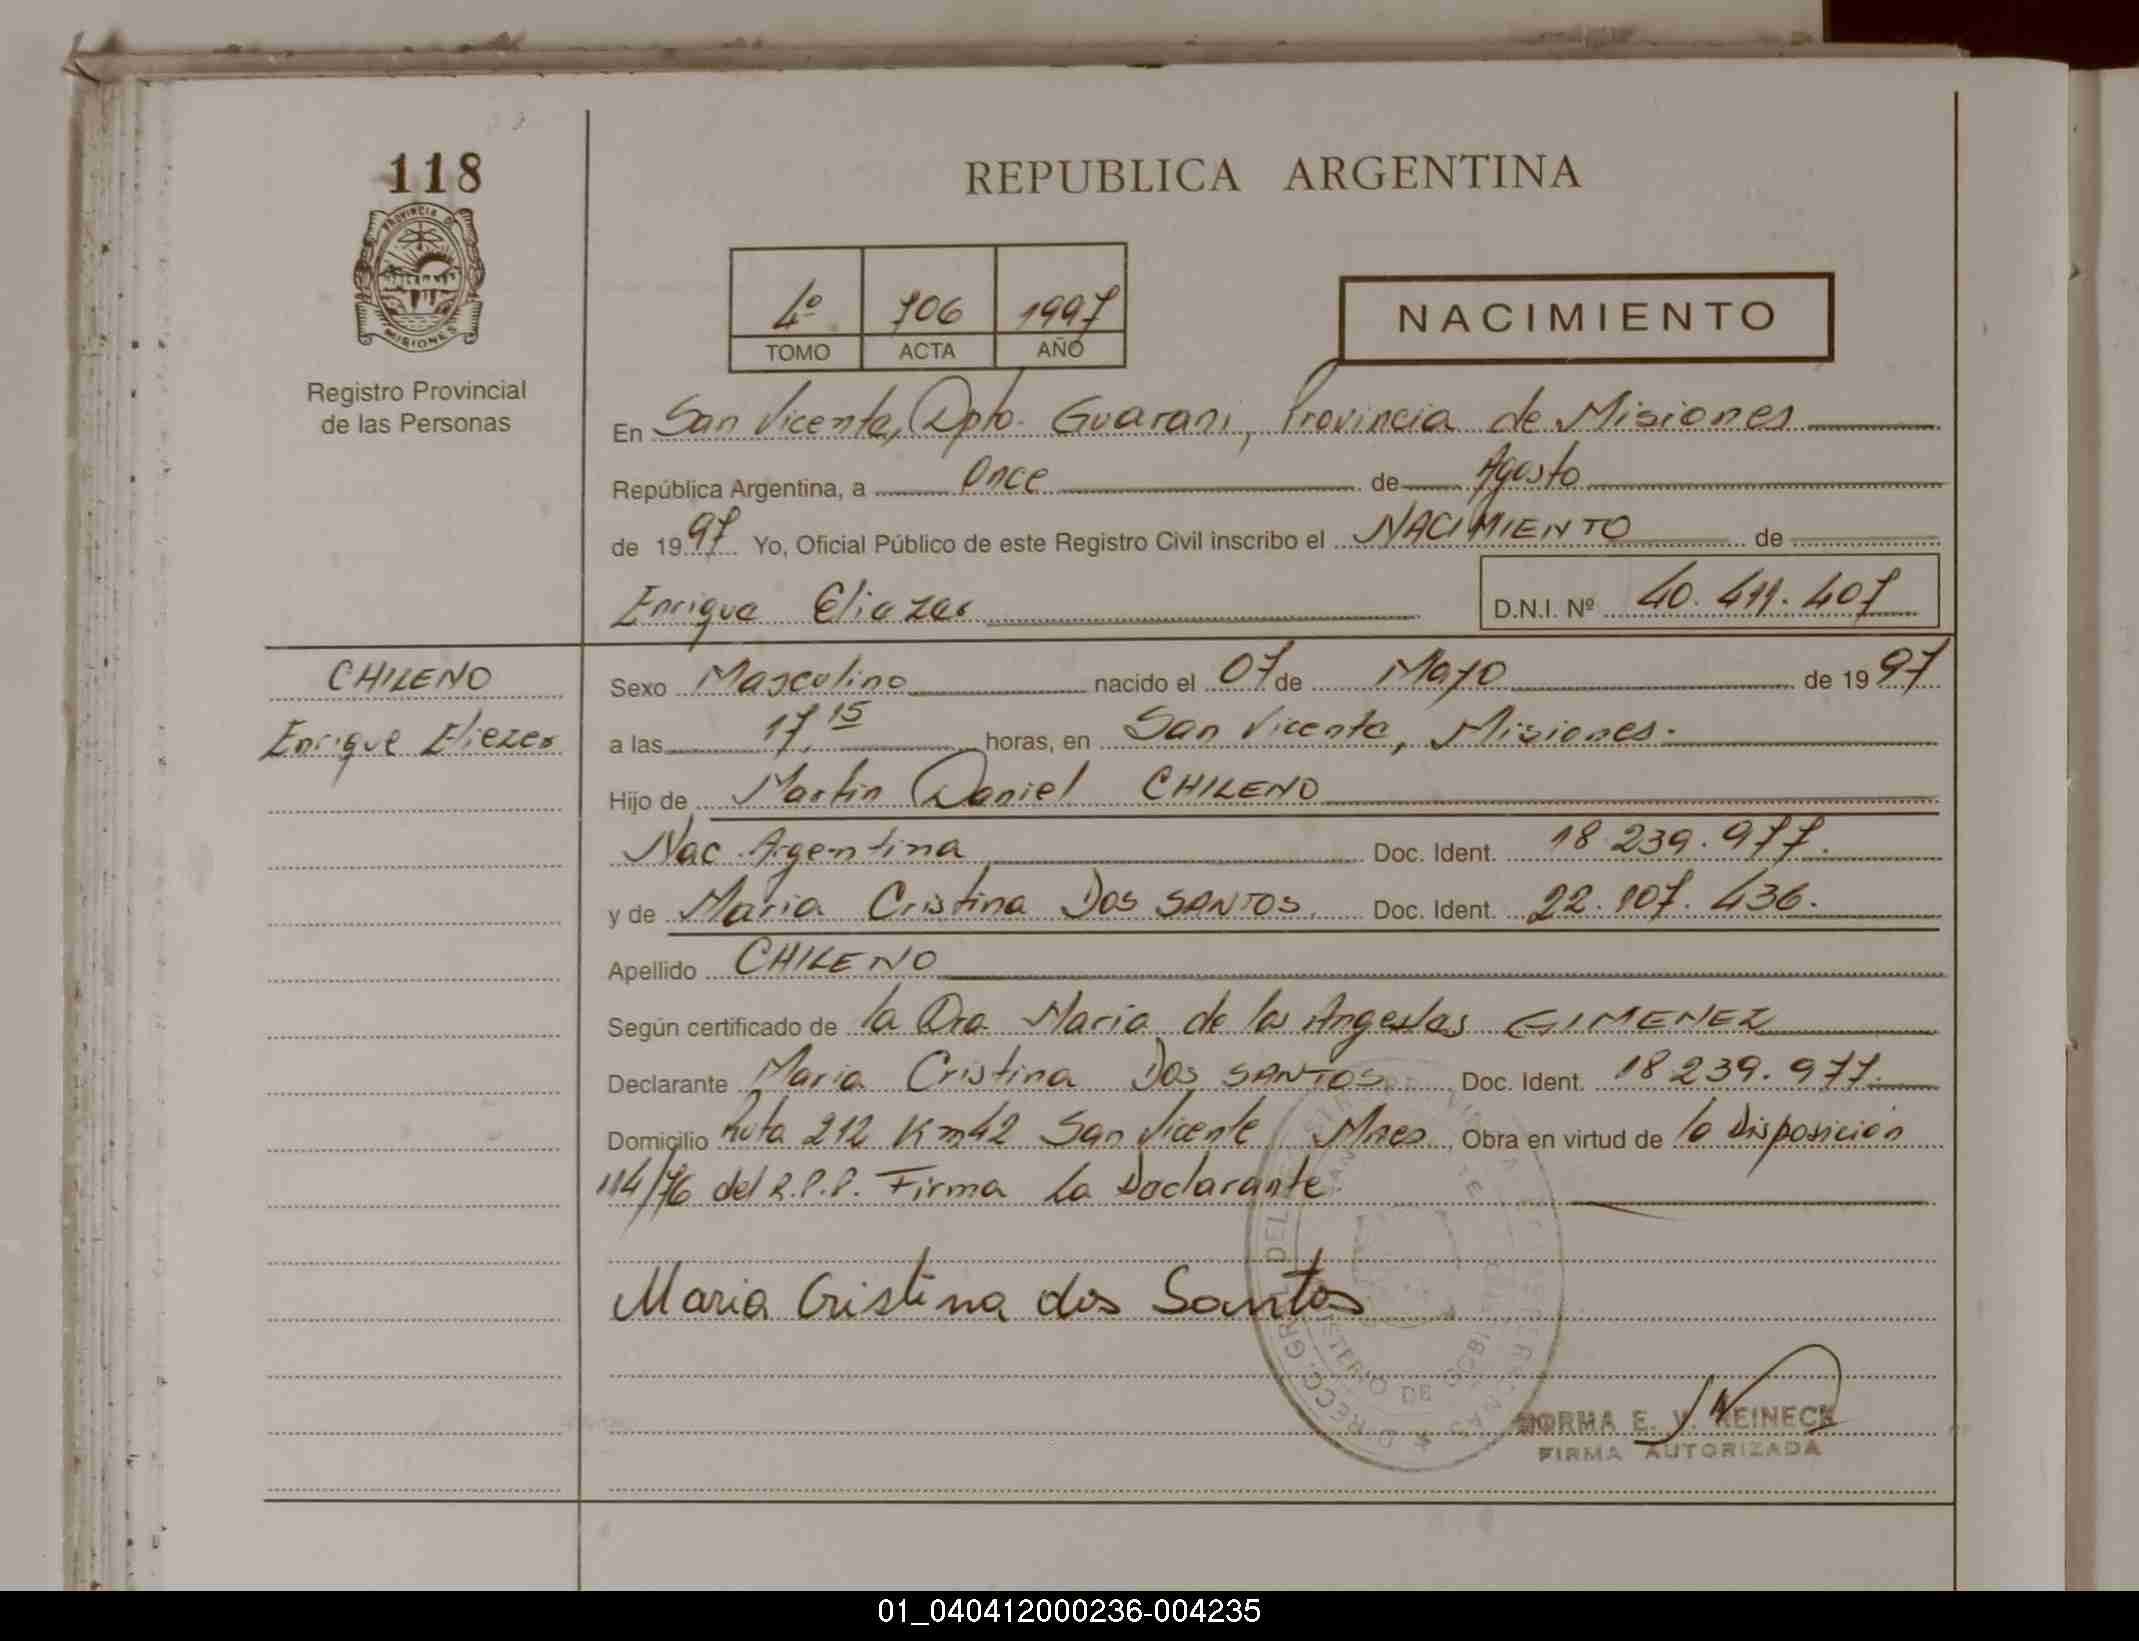 118
PROVINCIA DE
MISIONES
Registro Provincial
de las Personas
REPUBLICA ARGENTINA
4º 706 1997
TOMO ACTA AÑO
NACIMIENTO
En San Vicente, Dpto. Guarani, Provincia de Misiones
República Argentina, a Once de Agosto
de 1997 Yo, Oficial Público de este Registro Civil inscribo el NACIMIENTO de
Enrique Eliazer
D.N.I. Nº 40.411.407
CHILENO
Enrique Eliezer
Sexo Masculino nacido el 07 de Mayo de 1997
a las 17,15 horas, en San Vicente, Misiones.
Hijo de Martin Daniel CHILENO
Nac. Argentina Doc. Ident. 18.239.977.
y de Maria Cristina Dos SANTOS, Doc. Ident. 22.107.436.
Apellido CHILENO
Según certificado de la Dra Maria de los GIMENEZ
Declarante Maria Cristina Dos SANTOS Doc. Ident. 18239.977.
Domicilio Ruta 212 Km42 San Vicente, Mnes, Obra en virtud de la Disposición
114/76 del R.P.P. Firma La Declarante
Maria Cristina dos Santos
NORMA E. V. REINECK
FIRMA AUTORIZADA
01_040412000236-004235